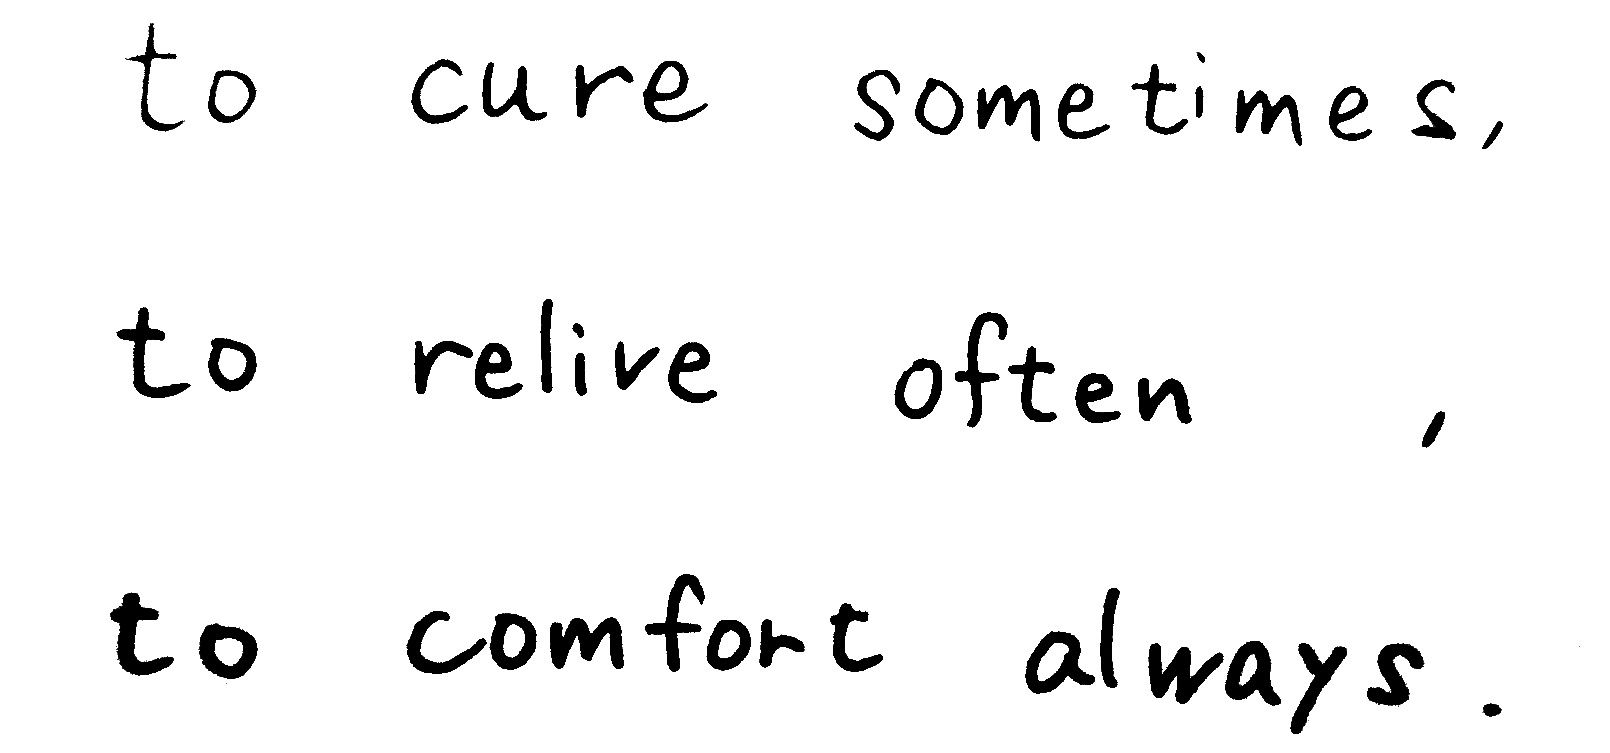 to cure sometimes,
to relive often ,
to comfort always.